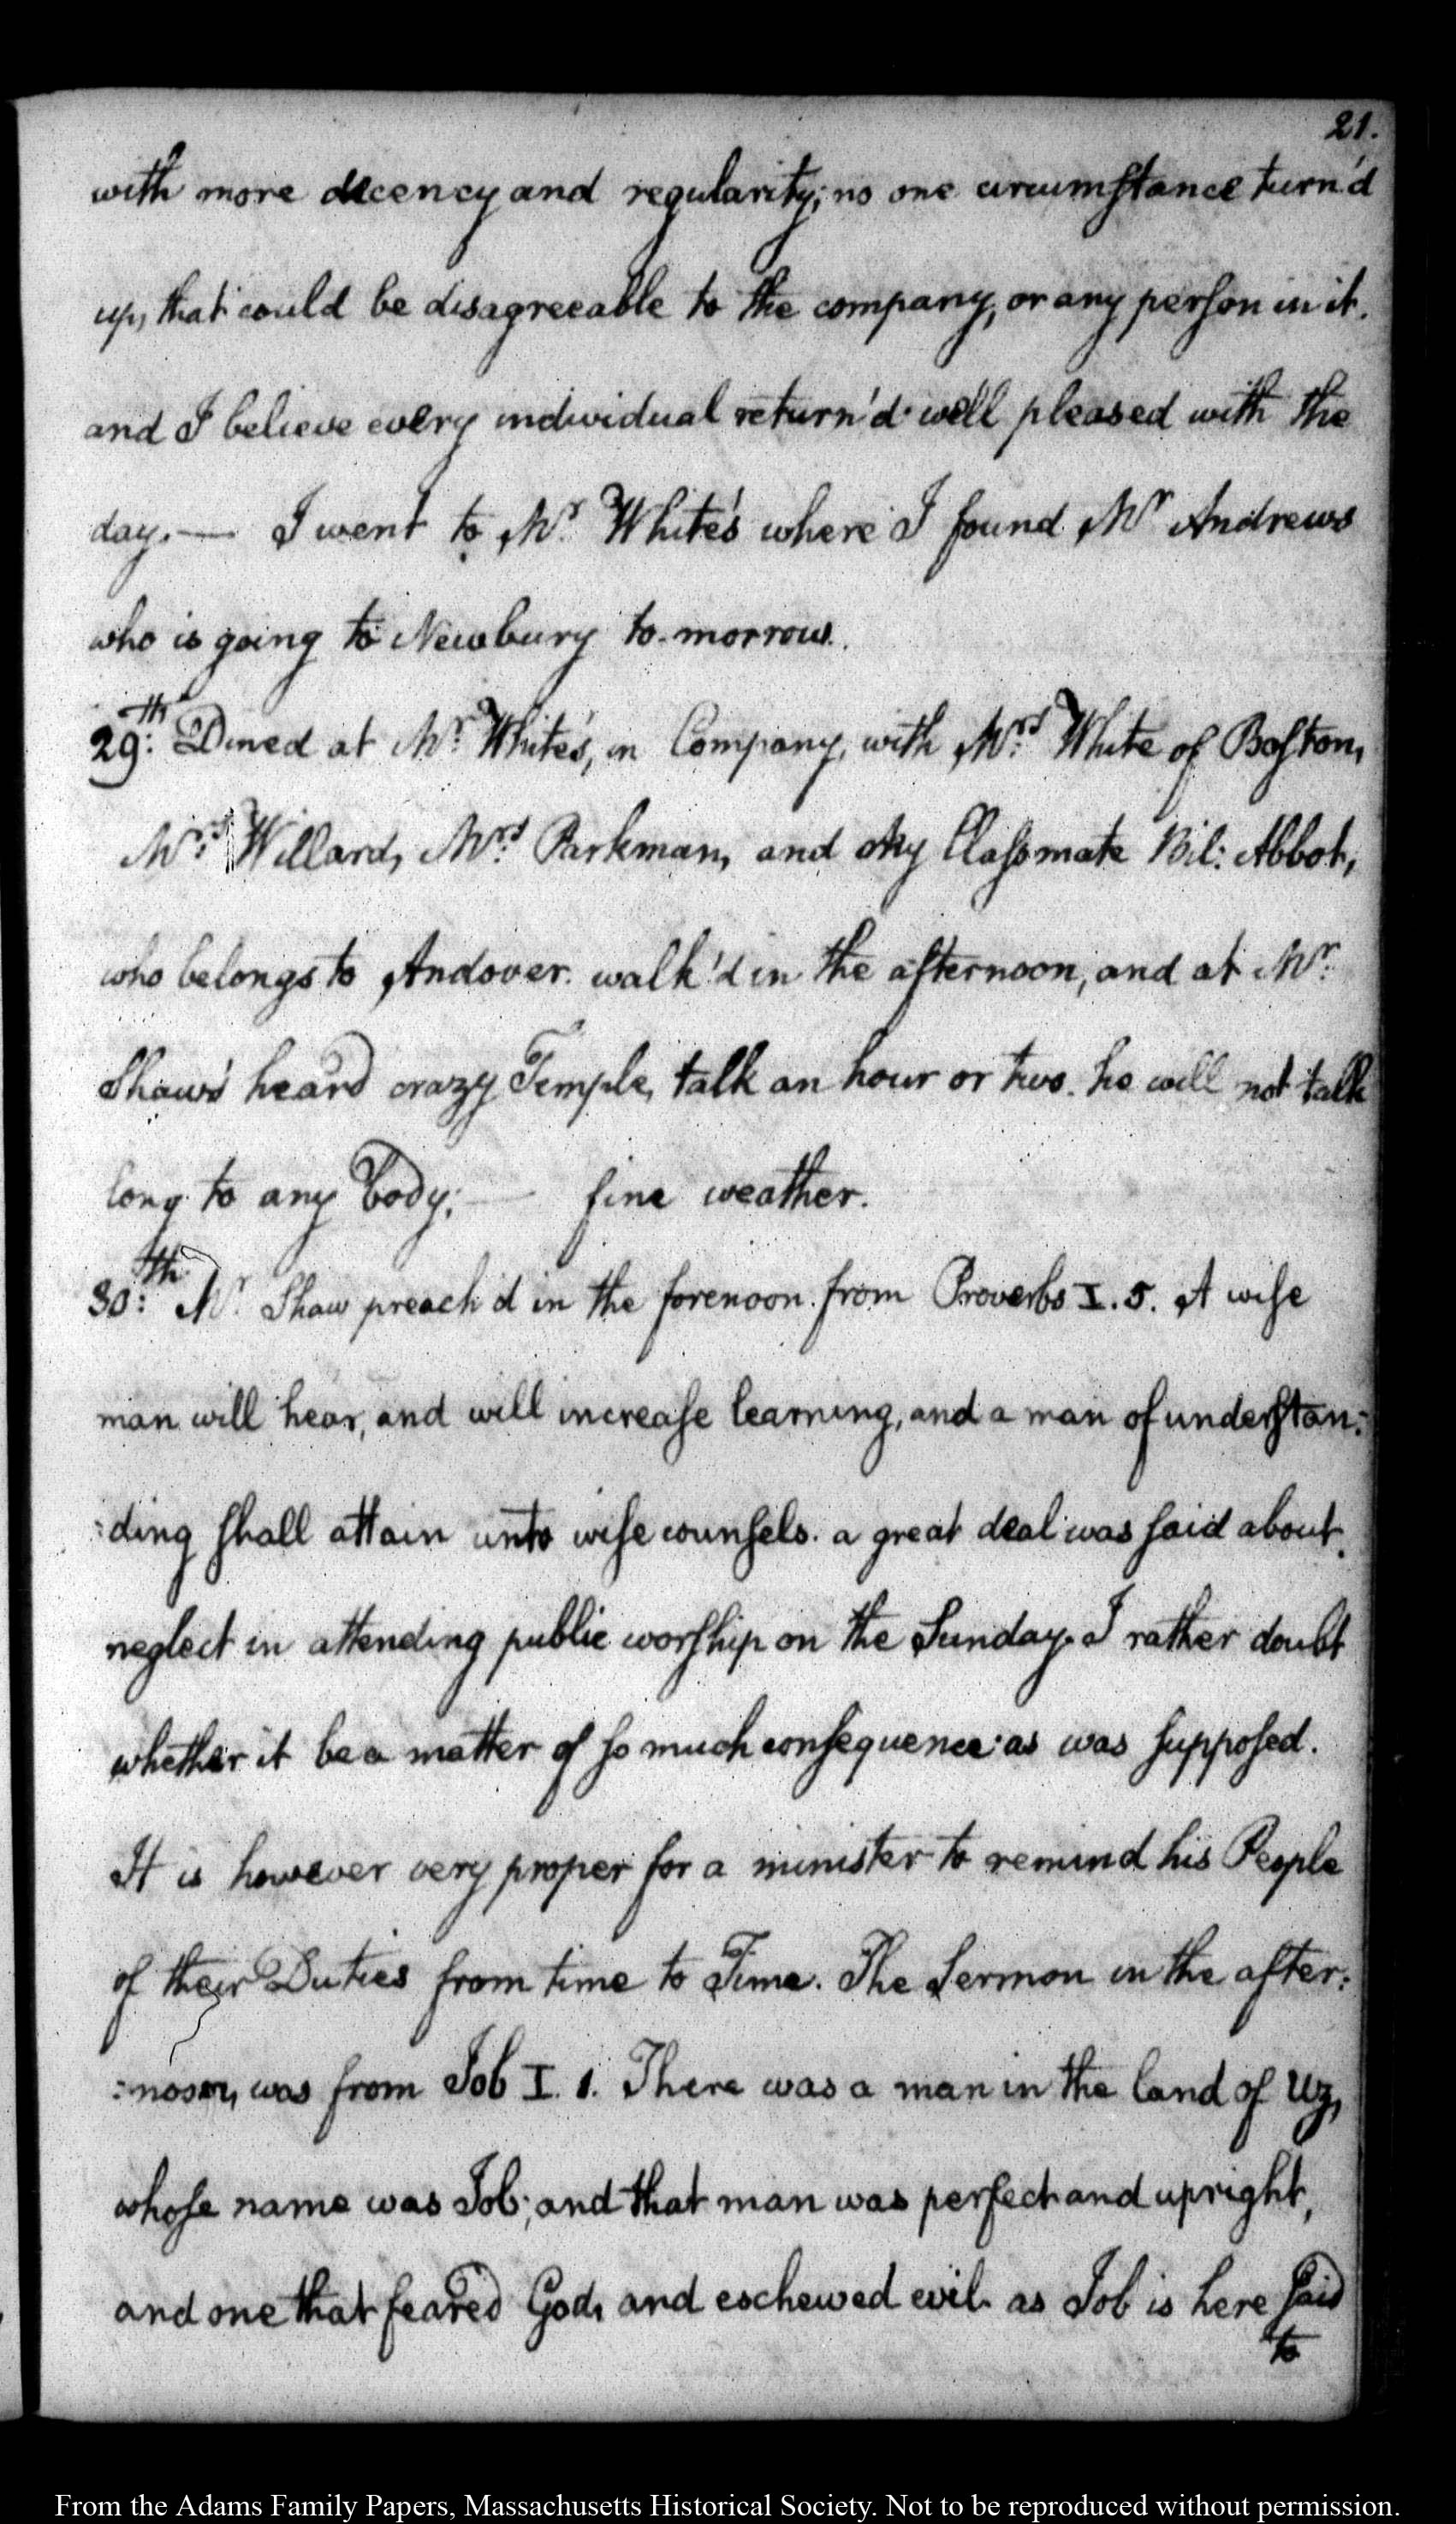 21.
with more decency and regularity; no one circumstance turn'd
up, that could be disagreeable to the company, or any person in it.
and I believe every individual return'd well pleased with the
day.— I went to Mr. White's where I found Mr Andrews
who is going to Newbury to-morrow.
29th: Dined at Mr. White's, in Company, with Mrs. White of Boston,
Mrs. Willard, Mrs. Parkman, and my Classmate Bil: Abbot,
who belongs to Andover. walk'd in the afternoon, and at Mr.
Shaw's heard crazy Temple, talk an hour or two. he will not talk
long to any body;— fine weather.
30th: Mr. Shaw preach'd in the forenoon. from Proverbs I. 5. A wise
man will hear, and will increase learning, and a man of understan:
:ding shall attain unto wise counsels. a great deal was said about
neglect in attending public worship on the Sunday. I rather doubt
whether it be a matter of so much consequence as was supposed.
It is however very proper for a minister to remind his People
of their Duties from time to Time. The Sermon in the after:
:noon, was from Job I. 1. There was a man in the land of Uz,
whose name was Job; and that man was perfect and upright,
and one that feared God, and eschewed evil. as Job is here said
to
From the Adams Family Papers, Massachusetts Historical Society. Not to be reproduced without permission.